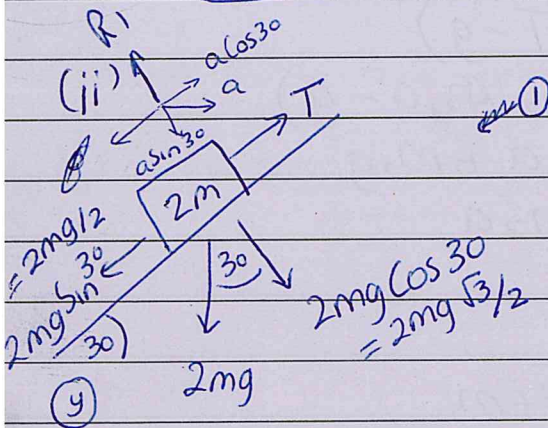 R1
(ii)
a Cos30
a
T
①
a sin 30
2m
= 2mg/2
2mg Sin 30
30
2mg Cos 30
= 2mg √3/2
30)
2mg
y